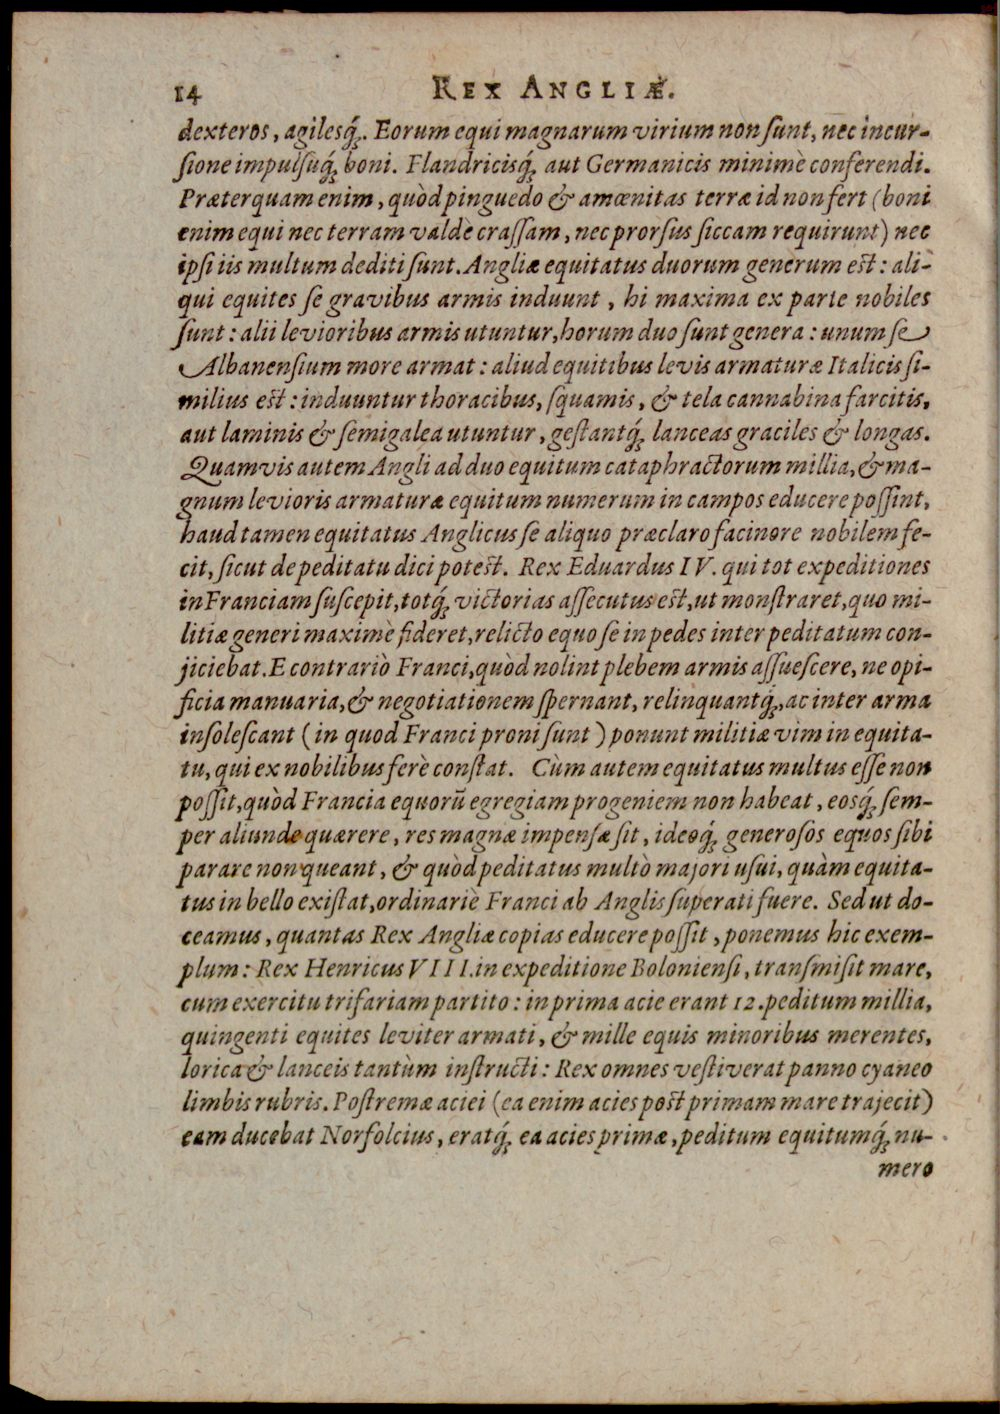 14 REX ANGLIÆ.
dexteros, agilesq́ꝫ. Eorum equi magnarum virium non ſunt, nec incur-
ſione impulſuq́ꝫ boni. Flandricisq́ꝫ aut Germanicis minimè conferendi.
Præterquam enim, quòd pinguedo & amœnitas terræ id non fert (boni
enim equi nec terram valdè craſſam, nec prorſus ſiccam requirunt) nec
ipſi iis multum dediti ſunt. Angliæ equitatus duorum generum est: ali-
qui equites ſe gravibus armis induunt, hi maxima ex parte nobiles
ſunt: alii levioribus armis utuntur, horum duo ſunt genera: unum ſe
Albanenſium more armat: aliud equitibus levis armaturæ Italicis ſi-
milius est: induuntur thoracibus, ſquamis, & tela cannabina farcitis,
aut laminis & ſemigalea utuntur, geſtantq́ꝫ lanceas graciles & longas.
Quamvis autem Angli ad duo equitum cataphractorum millia, & ma-
gnum levioris armaturæ equitum numerum in campos educere poſſint,
haud tamen equitatus Anglicus ſe aliquo præclaro facinore nobilem fe-
cit, ſicut de peditatu dici potest. Rex Eduardus IV. qui tot expeditiones
in Franciam ſuſcepit, totq́ꝫ victorias aſſecutus est, ut monſtraret, quo mi-
litiæ generi maximè fideret, relicto equo ſe in pedes inter peditatum con-
jiciebat. E contrariò Franci, quòd nolint plebem armis aſſueſcere, ne opi-
ficia manuaria, & negotiationem ſpernant, relinquantq́ꝫ, ac inter arma
inſoleſcant (in quod Franci proni ſunt) ponunt militiæ vim in equita-
tu, qui ex nobilibus ferè conſtat. Cùm autem equitatus multus eſſe non
poſſit, quòd Francia equorũ egregiam progeniem non habeat, eosq́ꝫ ſem-
per aliunde quærere, res magnæ impenſæ ſit, ideoq́ꝫ generoſos equos ſibi
parare non queant, & quòd peditatus multò majori uſui, quàm equita-
tus in bello exiſtat, ordinariè Franci ab Anglis ſuperati fuere. Sed ut do-
ceamus, quantas Rex Angliæ copias educere poſſit, ponemus hic exem-
plum: Rex Henricus VIII. in expeditione Bolonienſi, tranſmiſit mare,
cum exercitu trifariam partito: in prima acie erant 12. peditum millia,
quingenti equites leviter armati, & mille equis minoribus merentes,
lorica & lanceis tantùm inſtructi: Rex omnes veſtiverat panno cyaneo
limbis rubris. Poſtremæ aciei (ea enim acies post primam mare trajecit)
eam ducebat Norfolcius, eratq́ꝫ ea acies primæ, peditum equitumq́ꝫ nu-
mero